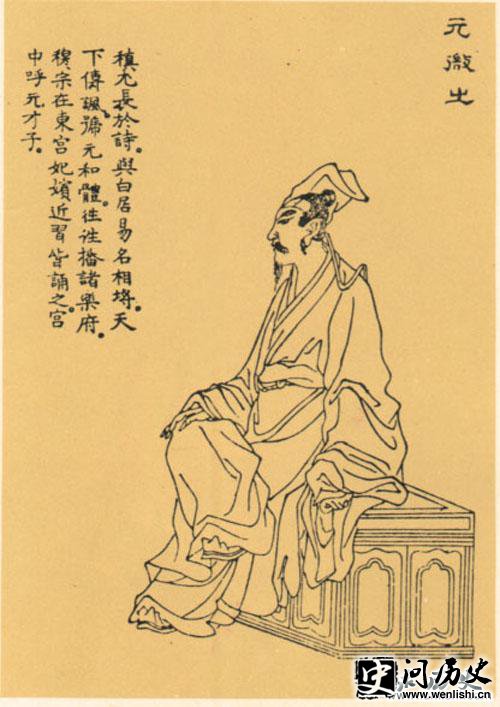 元微之
稹尤長於詩。與白居易名相埒。天
下傳諷。號元和體。往往播諸樂府。
穆宗在東宮妃嬪近習皆誦之宮
中呼元才子。
史问历史
www.wenlishi.cn